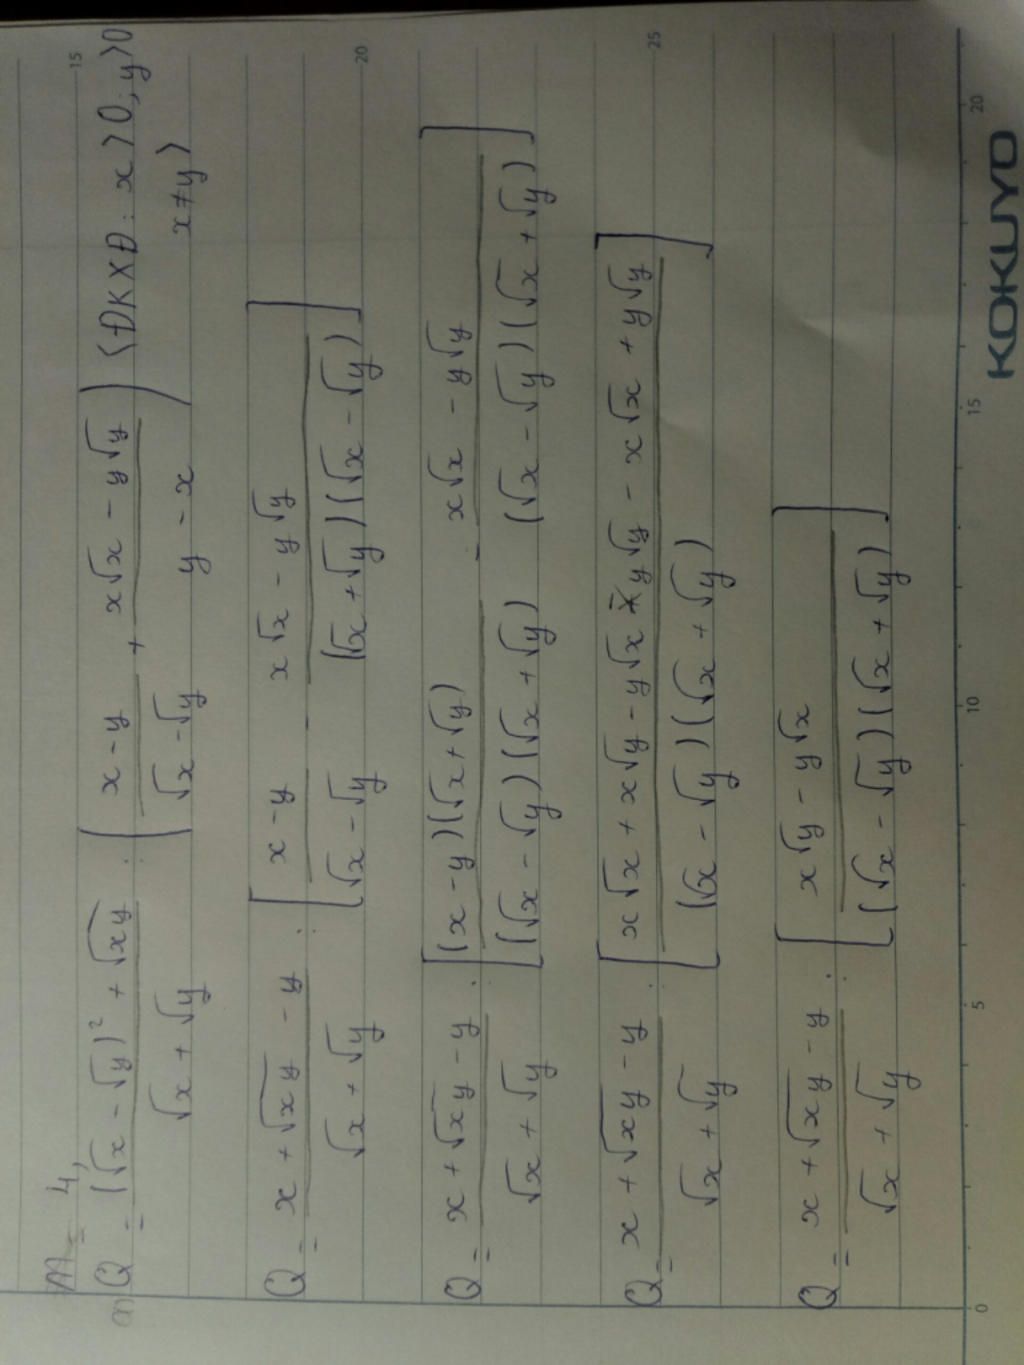 4,
a) Q = ((√x - √y)² + √xy)/(√x + √y) : ((x - y)/(√x - √y) + (x√x - y√y)/(y - x)) (ĐKXĐ: x > 0; y > 0
x ≠ y)
Q = (x + √xy - y)/(√x + √y) : [(x - y)/(√x - √y) - (x√x - y√y)/((√x + √y)(√x - √y))]
Q = (x + √xy - y)/(√x + √y) : [((x - y)(√x + √y))/((√x - √y)(√x + √y)) - (x√x - y√y)/((√x - √y)(√x + √y))]
Q = (x + √xy - y)/(√x + √y) : [(x√x + x√y - y√x - y√y - x√x + y√y)/((√x - √y)(√x + √y))]
Q = (x + √xy - y)/(√x + √y) : [(x√y - y√x)/((√x - √y)(√x + √y))]
15
20
25
0
5
10
15
20
KOKUYO